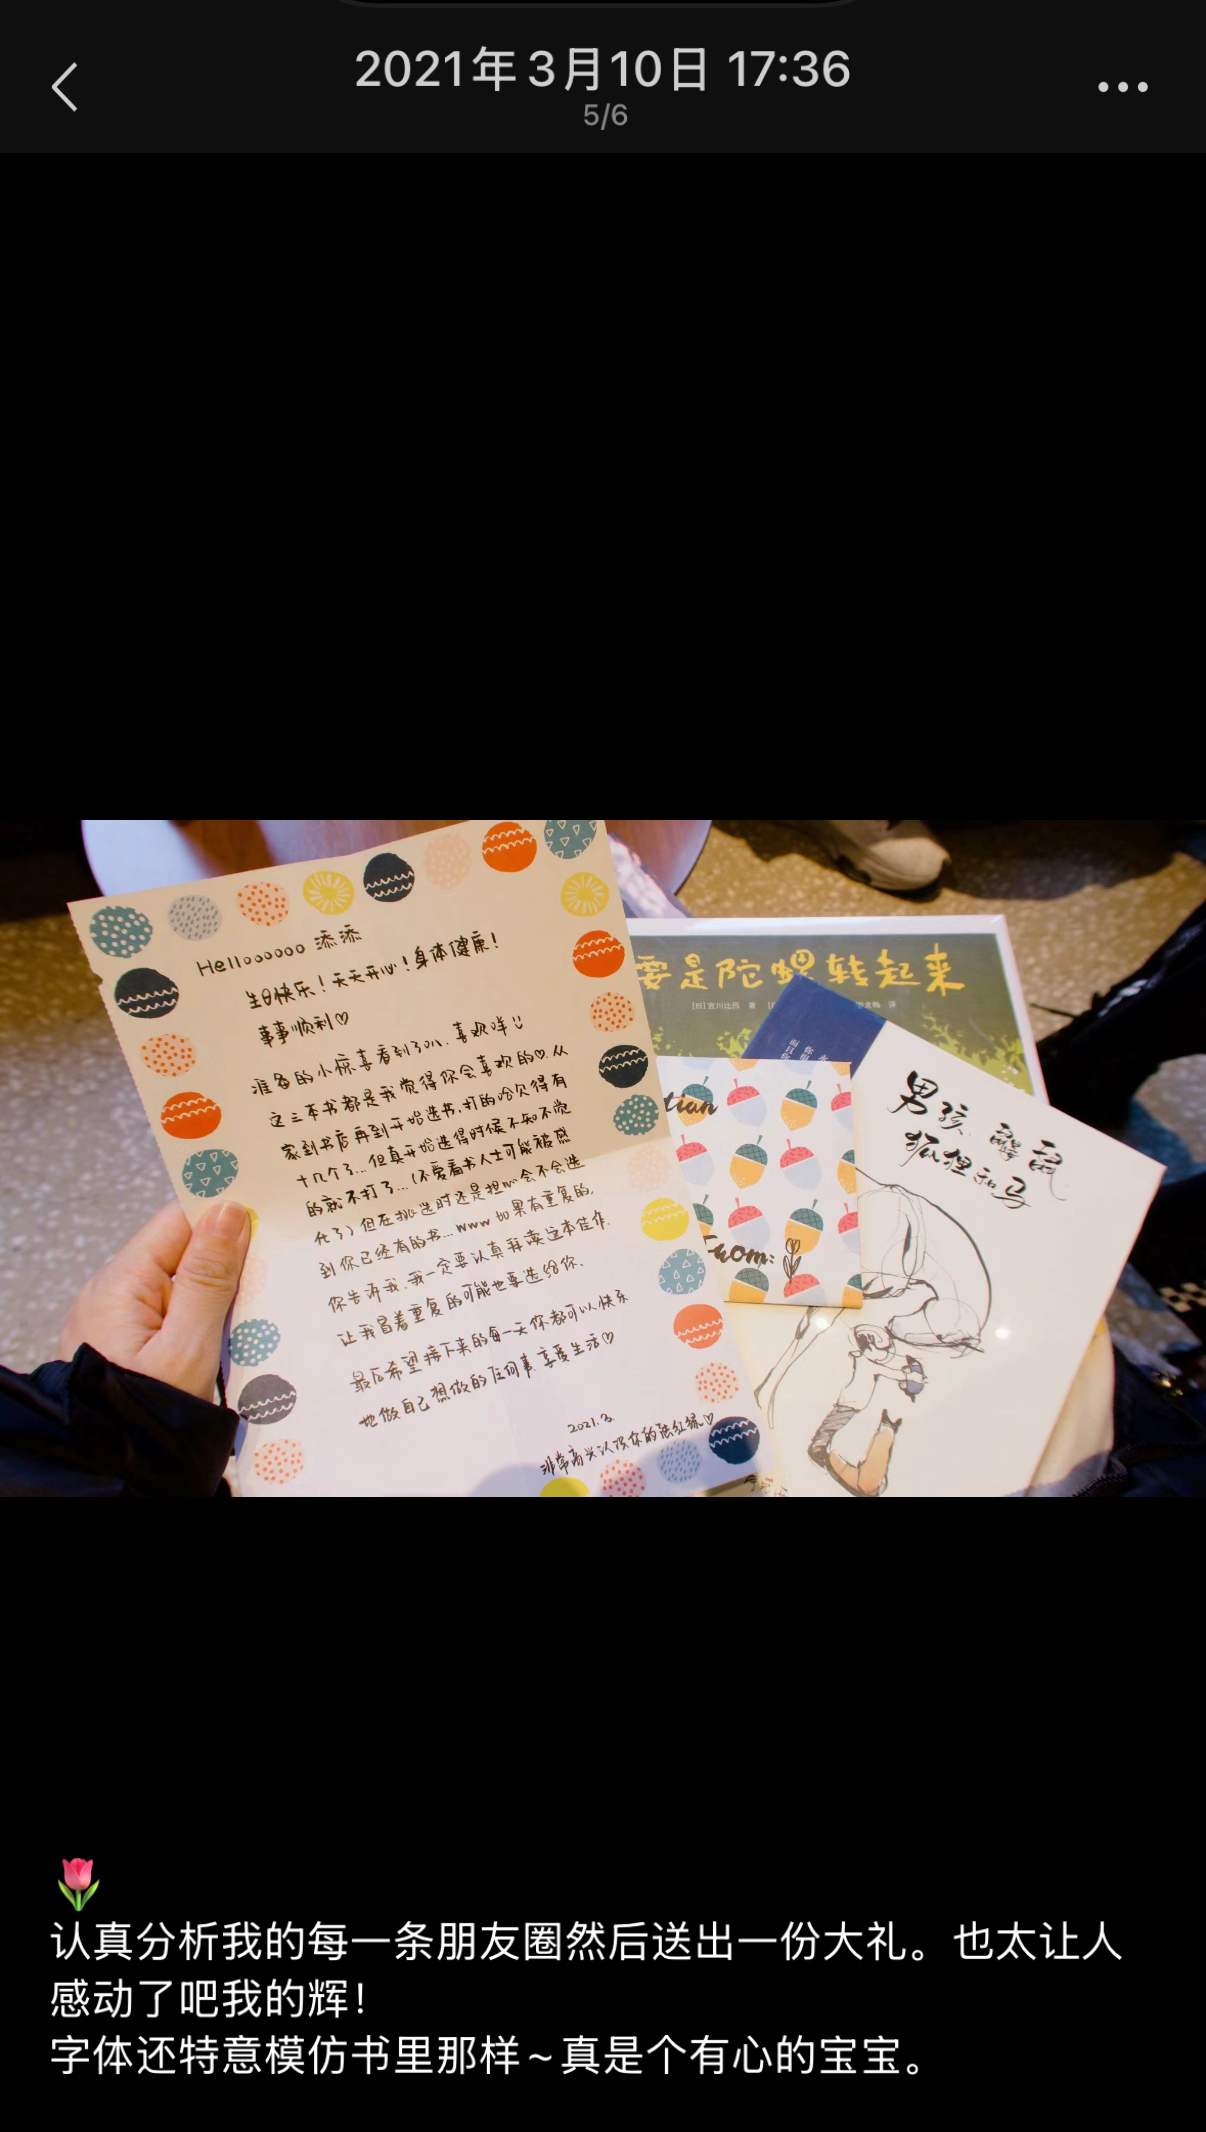 2021年3月10日 17:36
5/6
Hellooooooo 添添
生日快乐！天天开心！身体健康！
事事顺利♡
准备的小惊喜看到了叭.喜欢咩
这三本书都是我觉得你会喜欢的♡.从
家到书店再到开始选书.打的哈欠得有
十几个了...但真开始选得时候不知不觉
的就不打了...(不爱看书人士可能被感
化了)但在挑选时还是担心会不会选
到你已经有的书...www 如果有重复的.
你告诉我.我一定要认真拜读这本佳作.
让我冒着重复的可能也要选给你.
最后希望接下来的每一天你都可以快乐
地做自己想做的任何事.享受生活♡
2021.3.
非常高兴认识你的
要是陀螺转起来
[日]宫川比吕 著
译
tian
From:
男孩、鼹鼠、
狐狸和马
🌷
认真分析我的每一条朋友圈然后送出一份大礼。也太让人
感动了吧我的辉！
字体还特意模仿书里那样~真是个有心的宝宝。